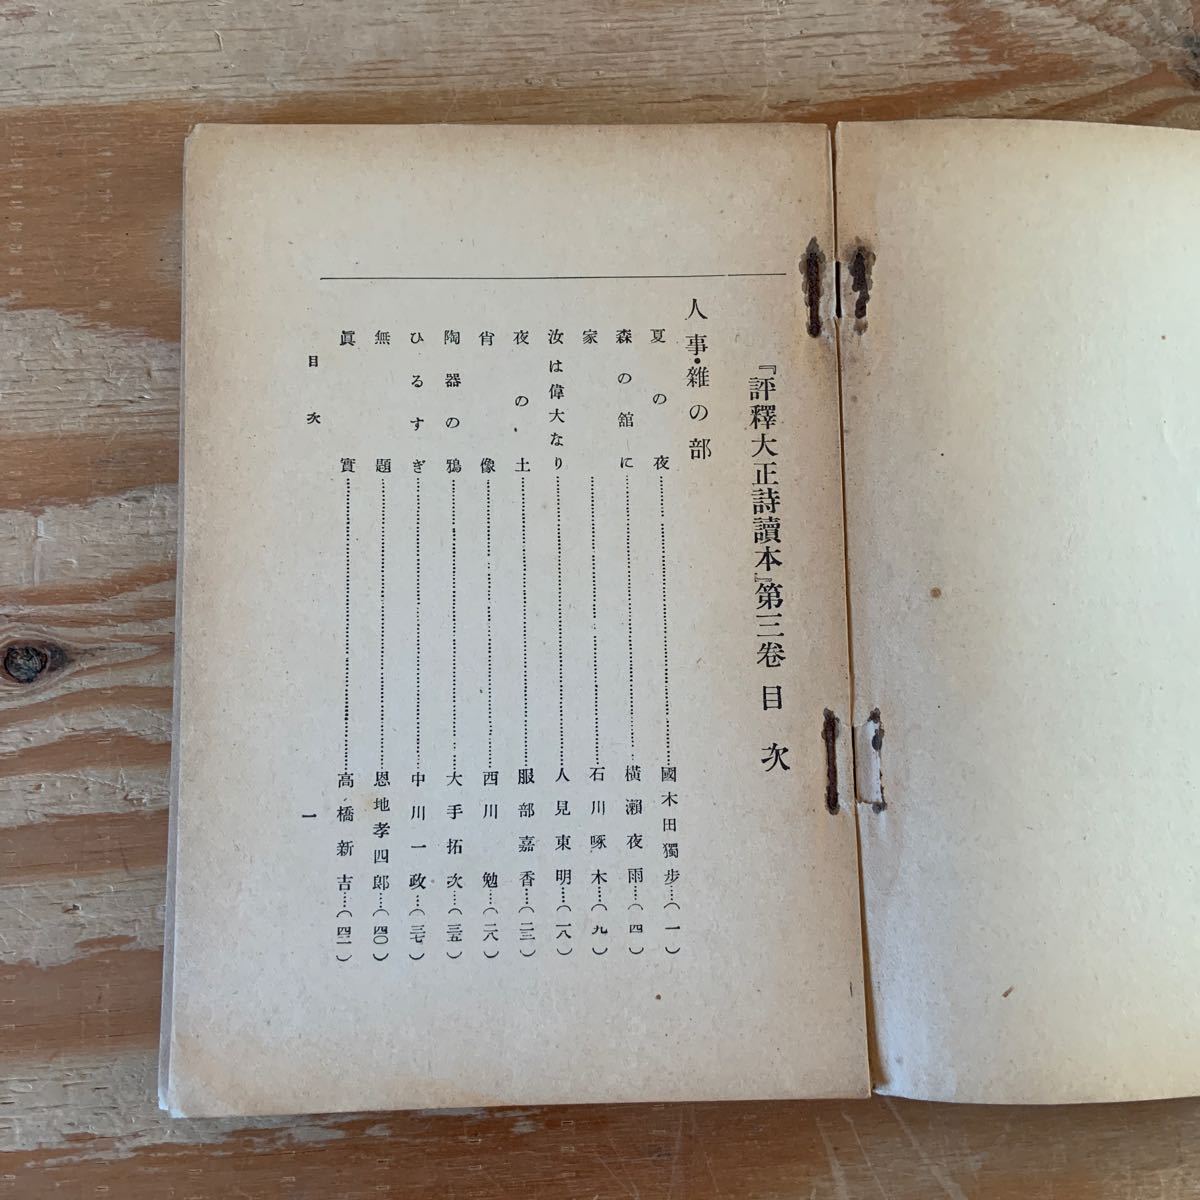 『評釋大正詩讀本』第三卷 目次
人事・雜の部
夏の夜……國木田獨步……(一)
森の舘に……橫瀨夜雨……(四)
家……石川啄木……(九)
汝は偉大なり……人見東明……(一八)
夜の土……服部嘉香……(二三)
肖像……西川勉……(二八)
陶器の鴉……大手拓次……(三五)
ひるすぎ……中川一政……(三七)
無題……恩地孝四郎……(四〇)
眞實……高橋新吉……(四二)
目次 一